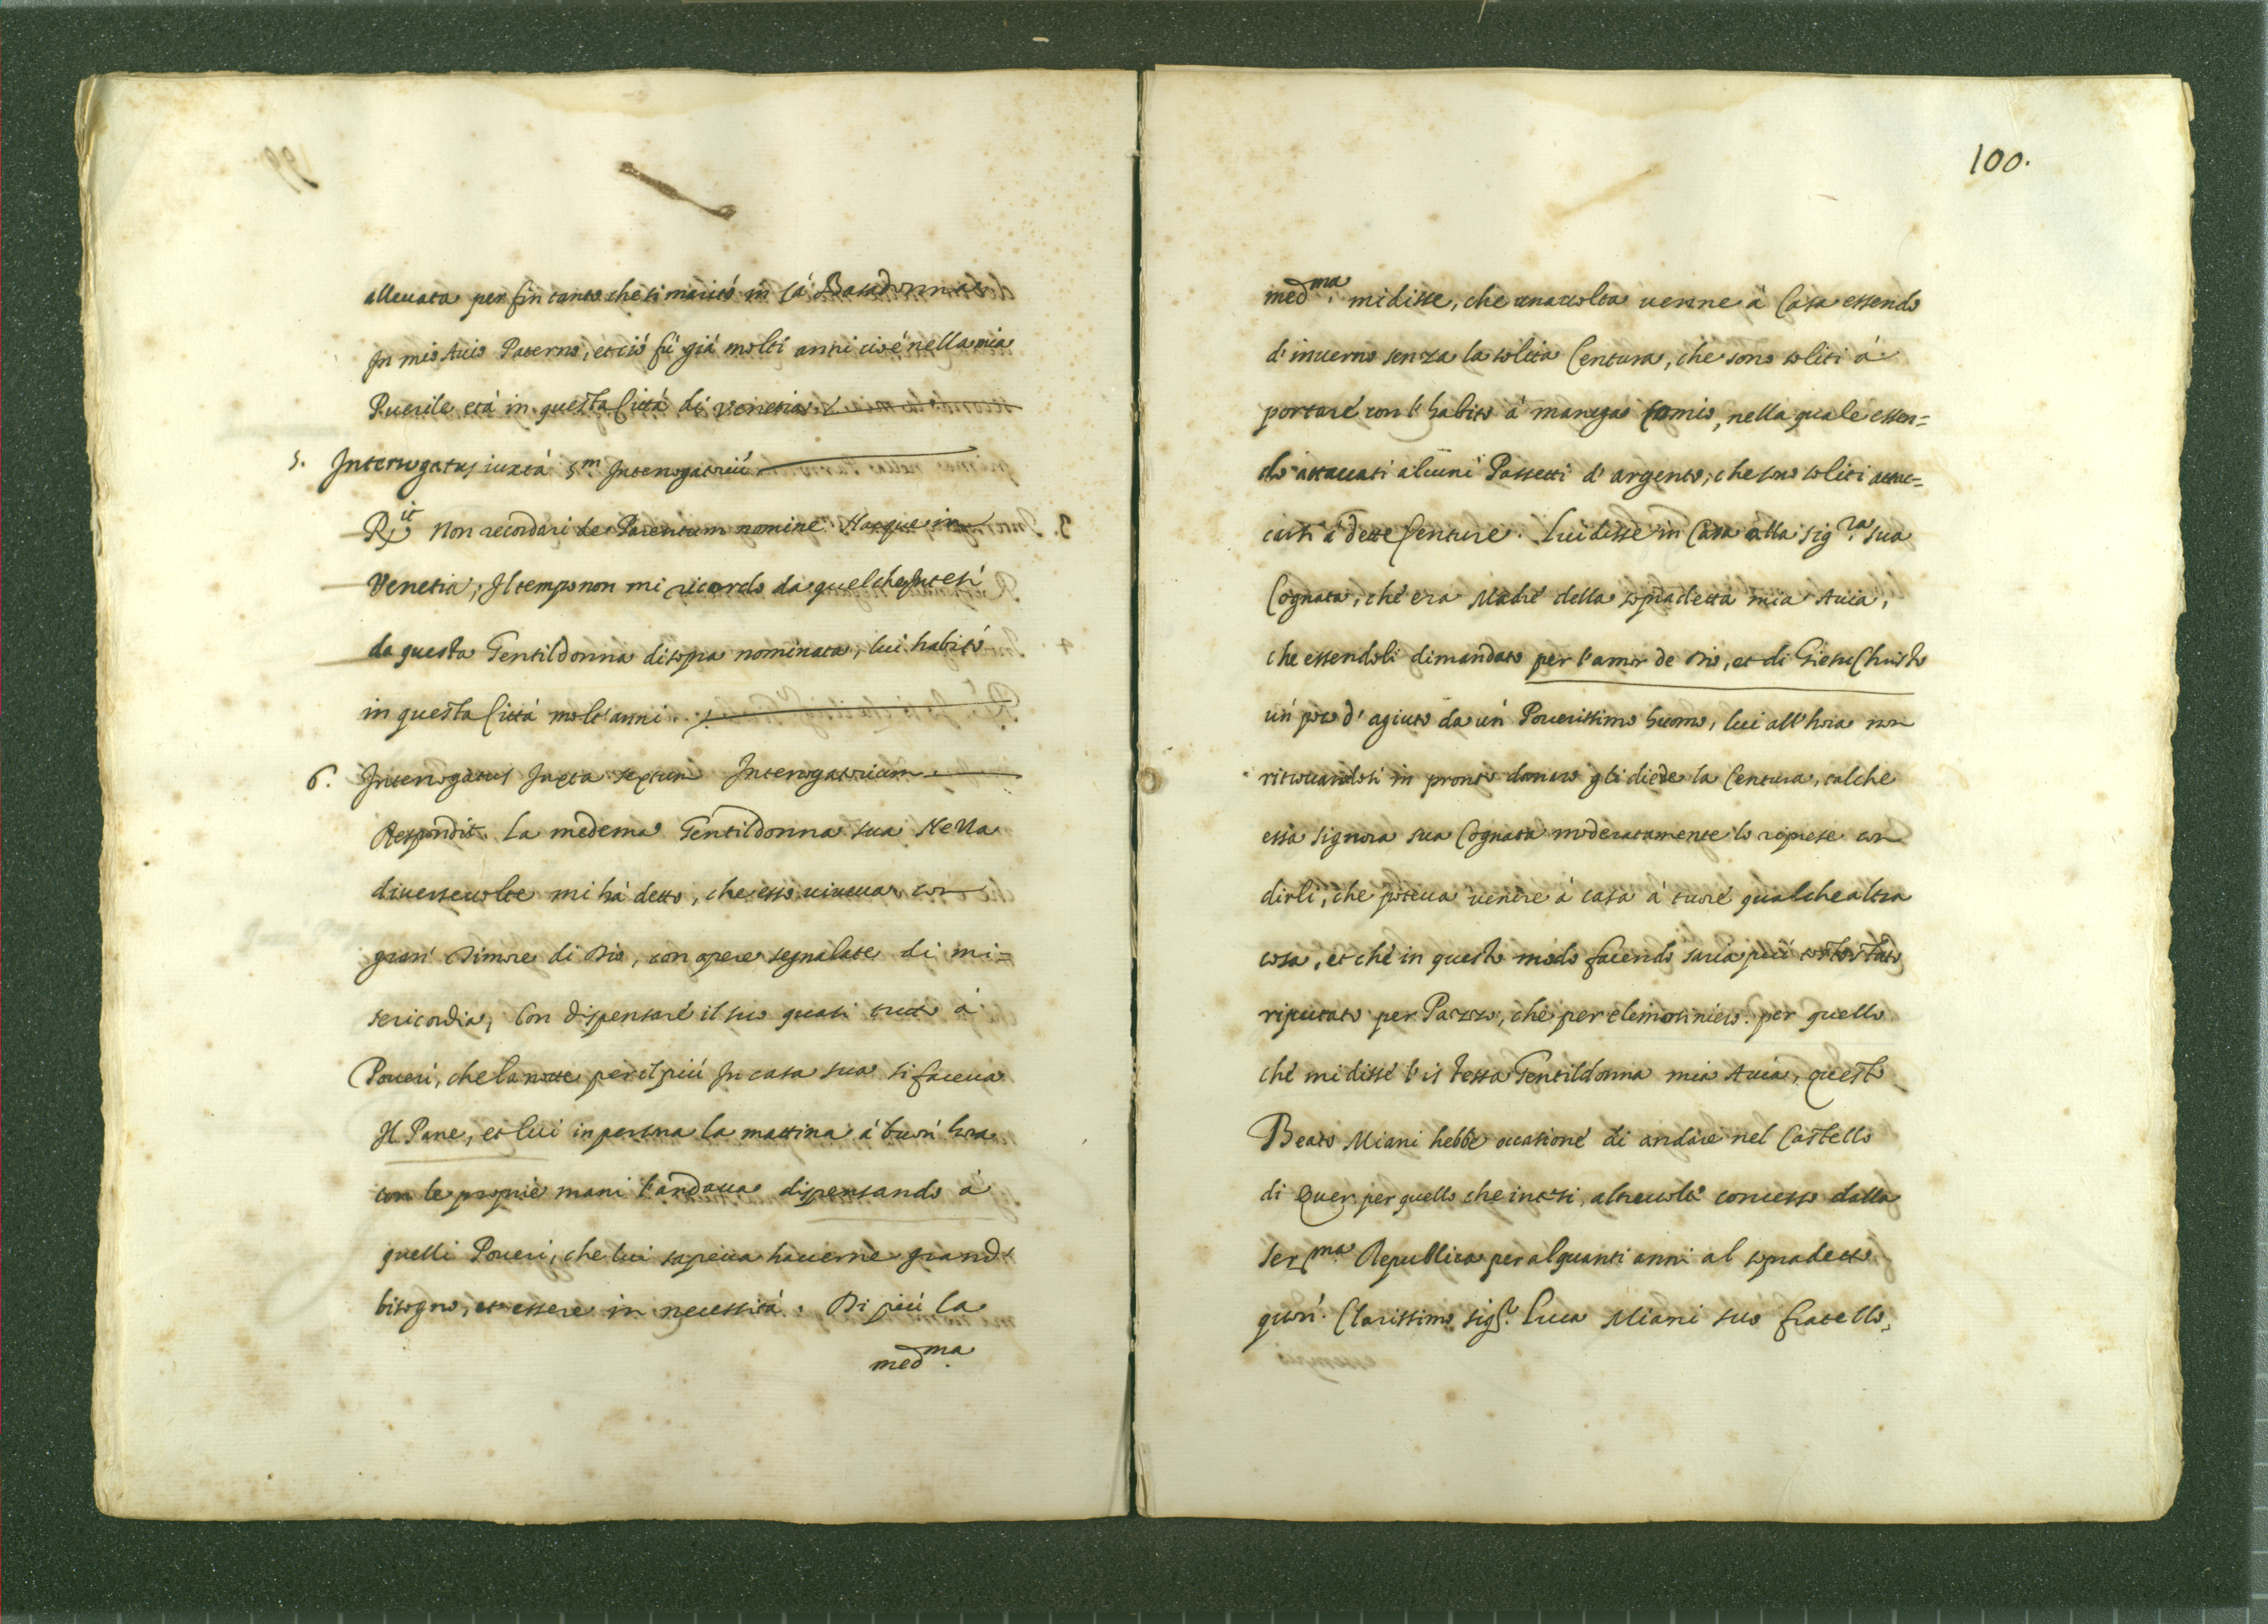 alleuata per fin tanto che si maritò in Cà Basadonna
In mio Auio Paterno, et ciò fù già molti anni cioè nella mia
Puerile età in questa Città di Venetia
5. Interrogatus iuxtà 5.m Interrogatoriũ
R.it Non recordari de Parentum nomine. Nacque in
Venetia; Il tempo non mi ricordo da quel che Intesi
da questa Gentildonna disopra nominata, lui habitò
in questa Città molt'anni.
6. Interrogatus Juxta sextum Interrogatorium
Respondit. La medema Gentildonna sua Neua
diuerseuolte mi hà detto, che esso uiueua con
gran' Timore di Dio, con opere segnalate di mi=
sericordia, Con dispensare il suo quasi tutto à
Poueri, che la notte per il più In casa sua si faceua
Il Pane, et lui in persona la mattina à buon' hora
con le proprie mani l'andaua dispensando à
quelli Poueri, che lui sapeua hauerne grand.
bisogno, et essere in necessità. Di più la
med.ma
100.
med.ma mi disse, che unauolta uenne à Casa essendo
d'inuerno senza la solita Centura, che sono soliti à
portare con l'habito à manega Comio, nella quale essen=
do attaccati alcuni Passetti d'argento, che sono soliti attac=
carsi à dette Centure. Lui disse in Casa alla sig.ra sua
Cognata, che era Madre della sopradetta mia Auia,
che essendoli dimandato per l'amor de Dio, et di Giesu Christo
un poco d'agiuto da un Pouerissimo huomo, lui all'hora non
ritrouandosi in pronto danaro gli diede la Centura, talche
essa signora sua Cognata moderatamente lo riprese con
dirli, che poteua uenire à casa à tuore qualche altra
cosa, et che in questo modo facendo saria più tosto stato
riputato per Pazzo, che per elemosiniero. per quello
che mi disse l'istessa Gentildonna mia Auia, questo
Beato Miani hebbe occasione di andare nel Castello
di Quer per quello che intesi, altreuolte concesso dalla
Ser.ma Republica per alquanti anni al sopradetto
quon. Clarissimo sig.r Luca Miani suo fratello,